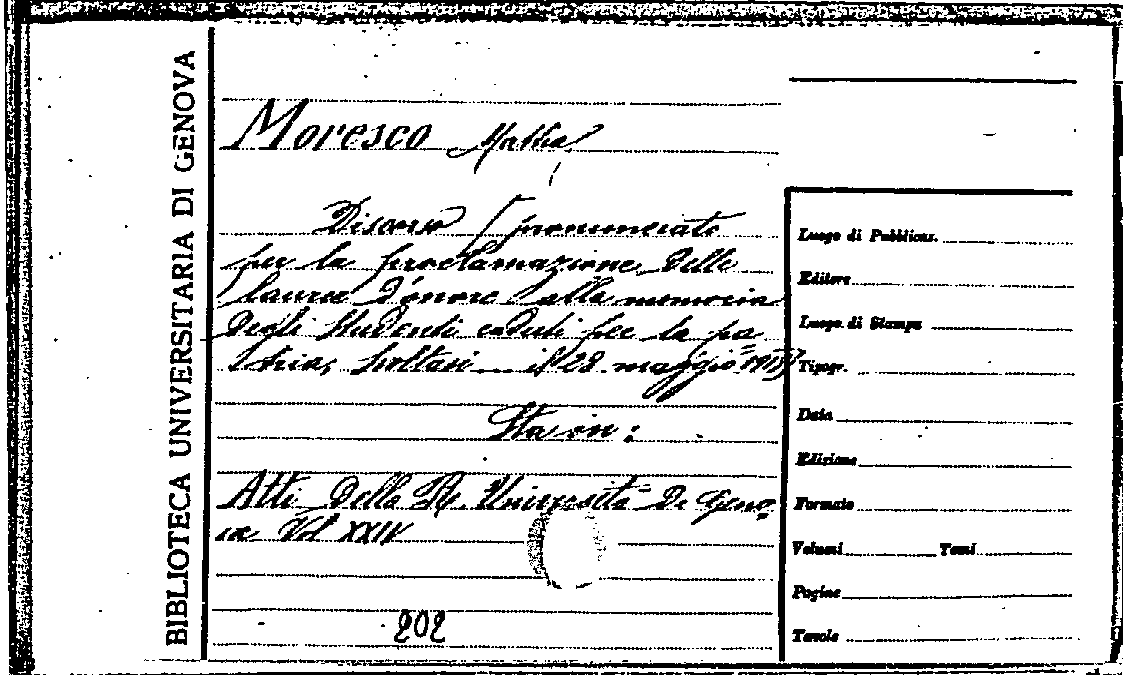 BIBLIOTECA UNIVERSITARIA DI GENOVA
Moresco Mattia
Discorso pronunciato
per la proclamazione delle
lauree d'onore alla memoria
degli studenti caduti per la pa
tria, svoltasi il 28 maggio
Sta in:
Atti della R. Università di Geno
va Vol XXIV
202
Luogo di Pubblicaz.
Editore
Luogo di Stampa
Tipogr.
Data
Edizione
Formato
Volumi Tomi
Pagine
Tavole